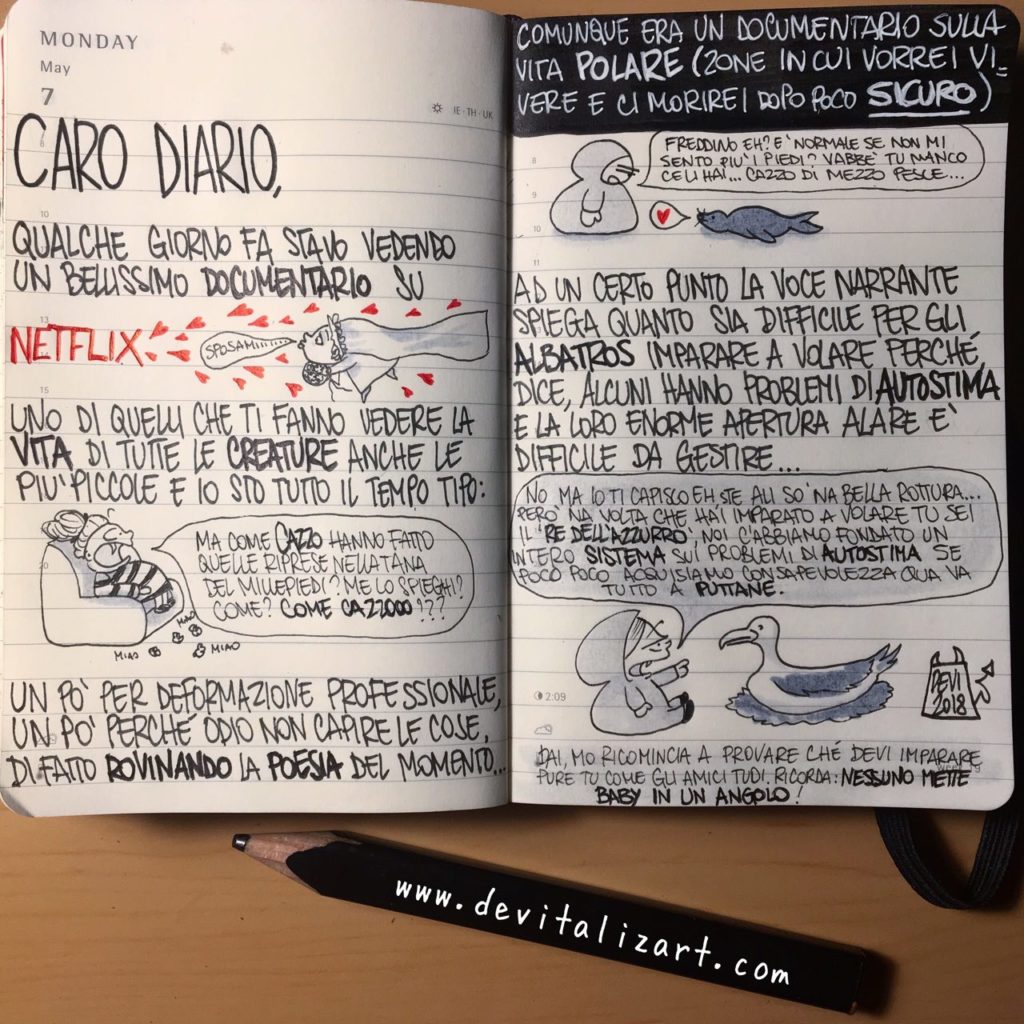 MONDAY
May
7
IE · TH · UK
CARO DIARIO,
QUALCHE GIORNO FA STAVO VEDENDO
UN BELLISSIMO DOCUMENTARIO SU
NETFLIX
SPOSAMIIIIII
UNO DI QUELLI CHE TI FANNO VEDERE LA
VITA DI TUTTE LE CREATURE ANCHE LE
PIU' PICCOLE E IO STO TUTTO IL TEMPO TIPO:
MA COME CAZZO HANNO FATTO
QUELLE RIPRESE NELLA TANA
DEL MILLEPIEDI? ME LO SPIEGHI?
COME? COME CAZZOOO!??
MIAO
MIAO
MIAO
UN PO' PER DEFORMAZIONE PROFESSIONALE,
UN PO' PERCHÉ ODIO NON CAPIRE LE COSE,
DI FATTO ROVINANDO LA POESIA DEL MOMENTO...
COMUNQUE ERA UN DOCUMENTARIO SULLA
VITA POLARE (ZONE IN CUI VORREI VI=
VERE E CI MORIREI DOPO POCO SICURO)
FREDDINO EH? E' NORMALE SE NON MI
SENTO PIU' I PIEDI? VABBE' TU MANCO
CE LI HAI... CAZZO DI MEZZO PESCE...
AD UN CERTO PUNTO LA VOCE NARRANTE
SPIEGA QUANTO SIA DIFFICILE PER GLI
ALBATROS IMPARARE A VOLARE PERCHÉ,
DICE, ALCUNI HANNO PROBLEMI DI AUTOSTIMA
E LA LORO ENORME APERTURA ALARE E'
DIFFICILE DA GESTIRE...
NO MA IO TI CAPISCO EH STE ALI SO' NA BELLA ROTTURA...
PERO' NA VOLTA CHE HAI IMPARATO A VOLARE TU SEI
IL "RE DELL'AZZURRO", NOI C'ABBIAMO FONDATO UN
INTERO SISTEMA SUI PROBLEMI DI AUTOSTIMA SE
POCO POCO ACQUISIAMO CONSAPEVOLEZZA QUA VA
TUTTO A PUTTANE.
DEVI
2018
2:09
DAI, MO RICOMINCIA A PROVARE CHÉ DEVI IMPARARE
PURE TU COME GLI AMICI TUOI. RICORDA: NESSUNO METTE
BABY IN UN ANGOLO!
www.devitalizart.com